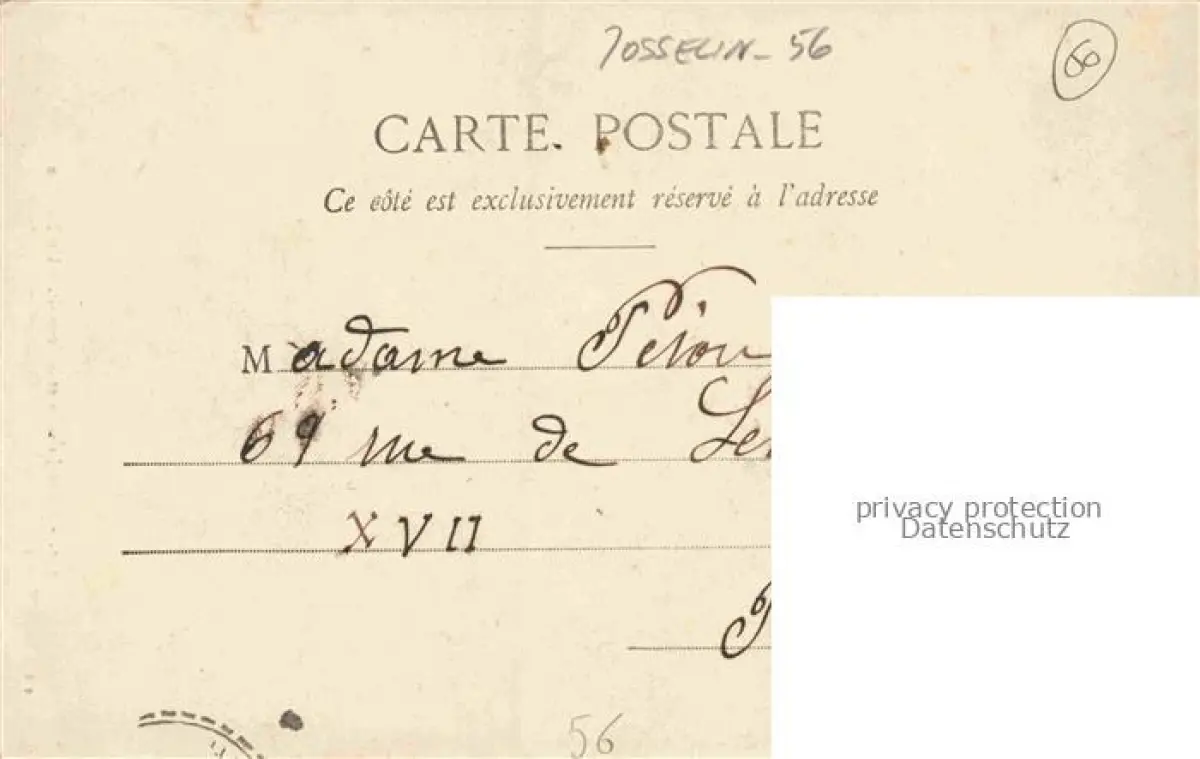 JOSSELIN - 56
60
CARTE POSTALE
Ce côté est exclusivement réservé à l'adresse
Madame
69 rue de
XVII
privacy protection
Datenschutz
56